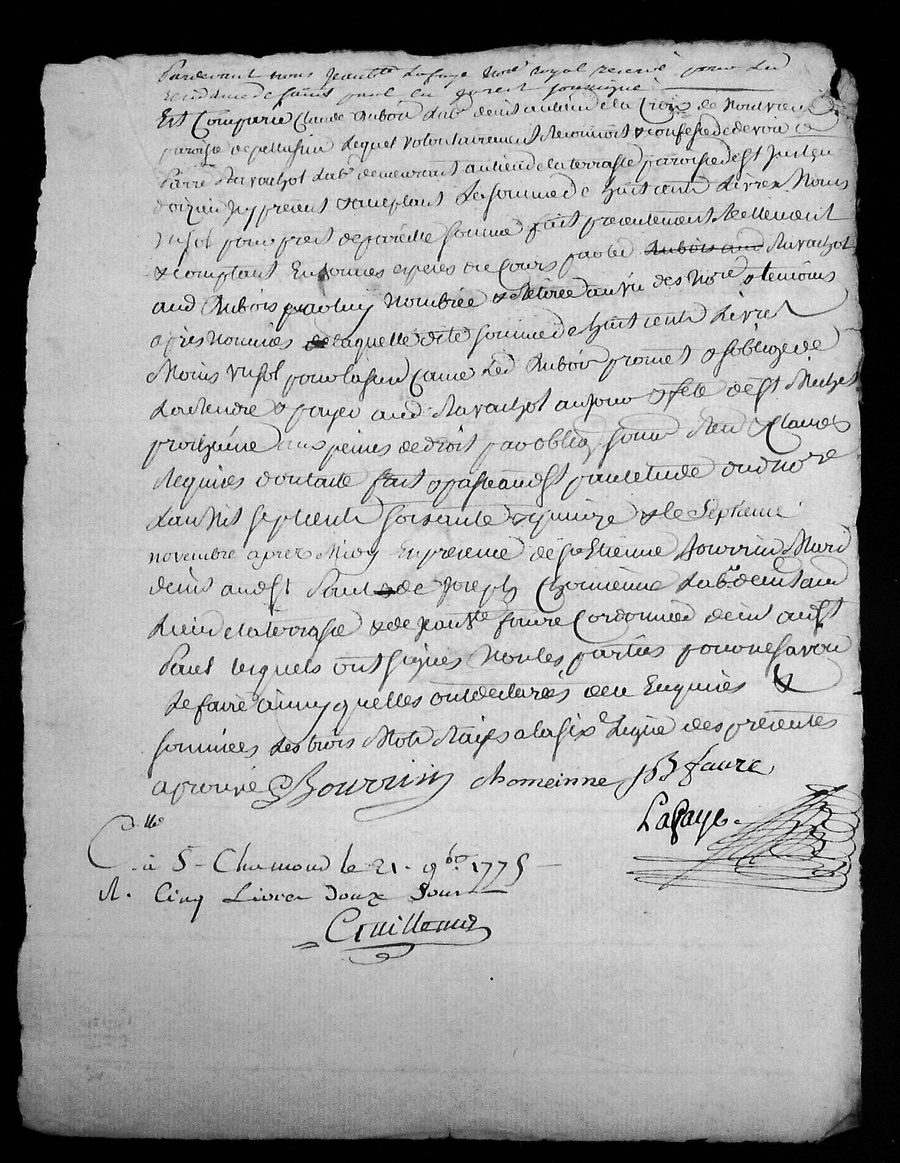 Pardevant nous Jean bte Lafaye Nore royal reservé pour la
residence de saint paul en jarest soussigné
Est Comparu Claude Dubois Labr demt au lieu de la Croix de Montvieux
paroisse de pellussin Lequel volontairement reconnoit & confesse de devoir a
Pierre Ravachol Labr demeurant au lieu de la terrasse paroisse dudt st paul en
icy present & acceptant La somme de huit cent Livres Moins
un sol pour prest de pareille somme fait presentement Reellement
& comptant En bonnes especes de Cours par led Dubois aud Ravachol
aud Dubois par luy Nombrée & Retirée au vu des Nore & temoins
apres nommés de laquelle dite somme de huit cent Livres
Moins un sol pour lad Cause Led Dubois promet & soblige de
La rendre & payer aud Ravachol au jour & fete de st Michel
prochaine aux peines de droit par obligon soumon Renon & Clauses
Requises dont acte fait & passé audt st paul etude dud nore
Lan Mil sept cent soixante & quinze & le Septieme
novembre apres Midy En presence de sr Etienne Bourrin Mard
demt audt st Paul & de Joseph Chomienne Labr demt aud
Lieu de la terrasse & de Jean Bte faure Cordonnier demt audt st
Paul lesquels ont signés Non les parties pour ne savoir
Le faire ainsy quelles ont declarés de ce Enquises &
sommées Les trois Mots Rayés a la sixe Ligne des presentes
aprouvé Bourrin chomeinne JB faure
Lafaye
Cllé
à St Chamond le 21. 9bre 1775
R. Cinq Livres douze Sous